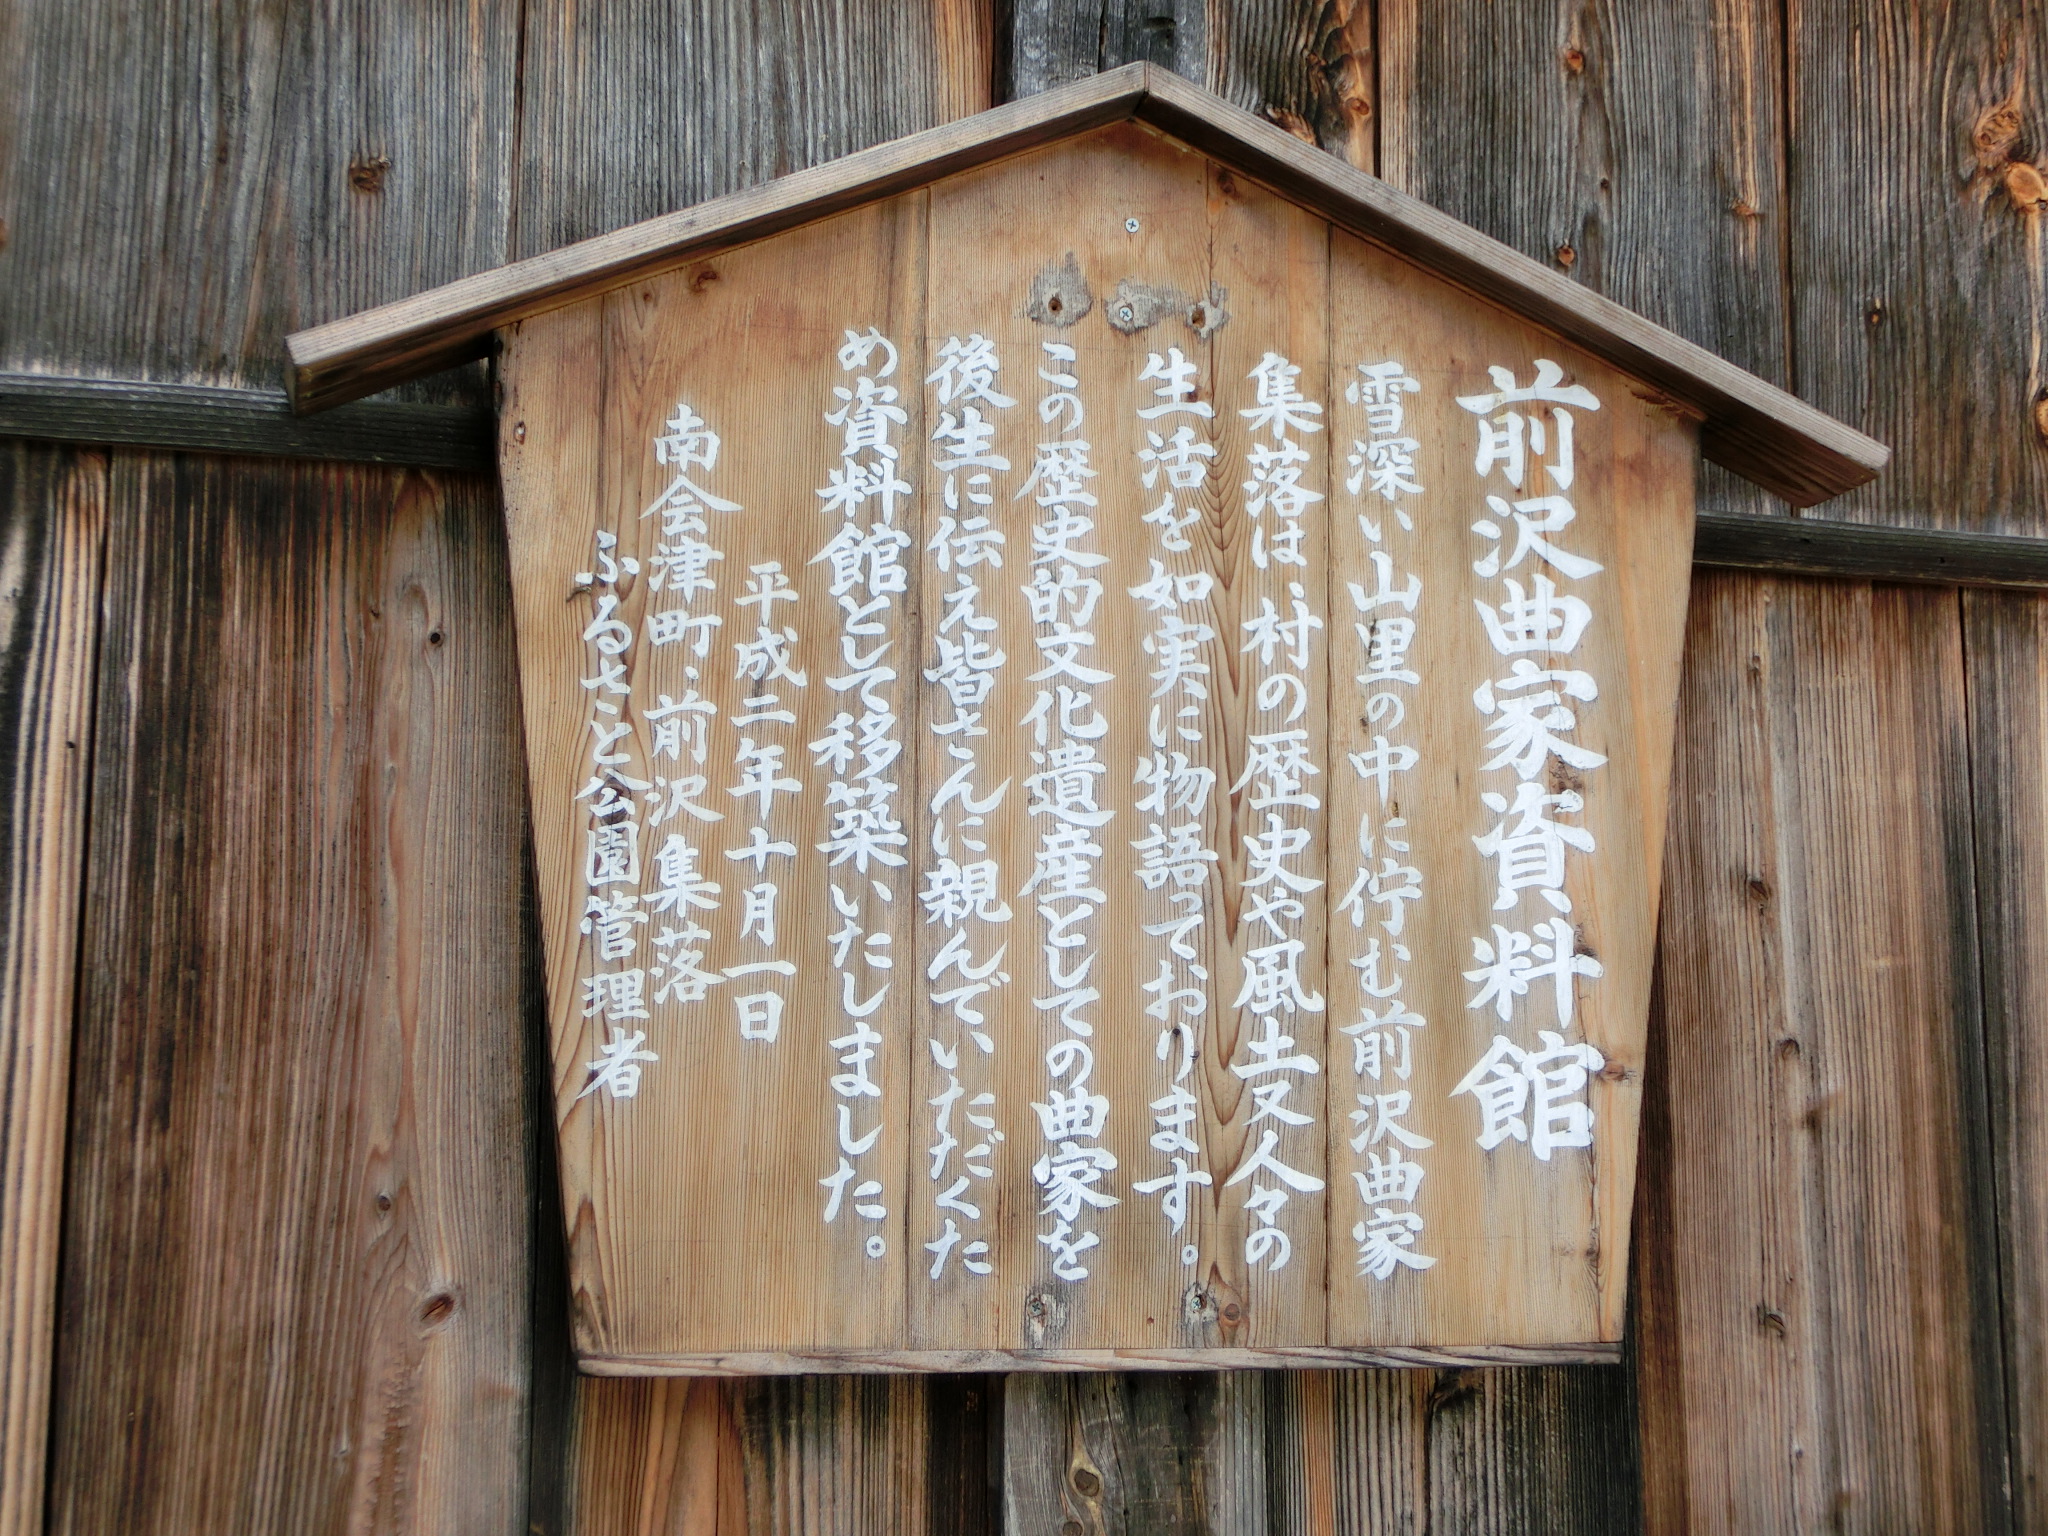 前沢曲家資料館
雪深い山里の中に佇む前沢曲家
集落は、村の歴史や風土又人々の
生活を如実に物語っております。
この歴史的文化遺産としての曲家を
後生に伝え皆さんに親んでいただくた
め資料館として移築いたしました。
平成二年十月一日
南会津町・前沢集落
ふるさと公園管理者